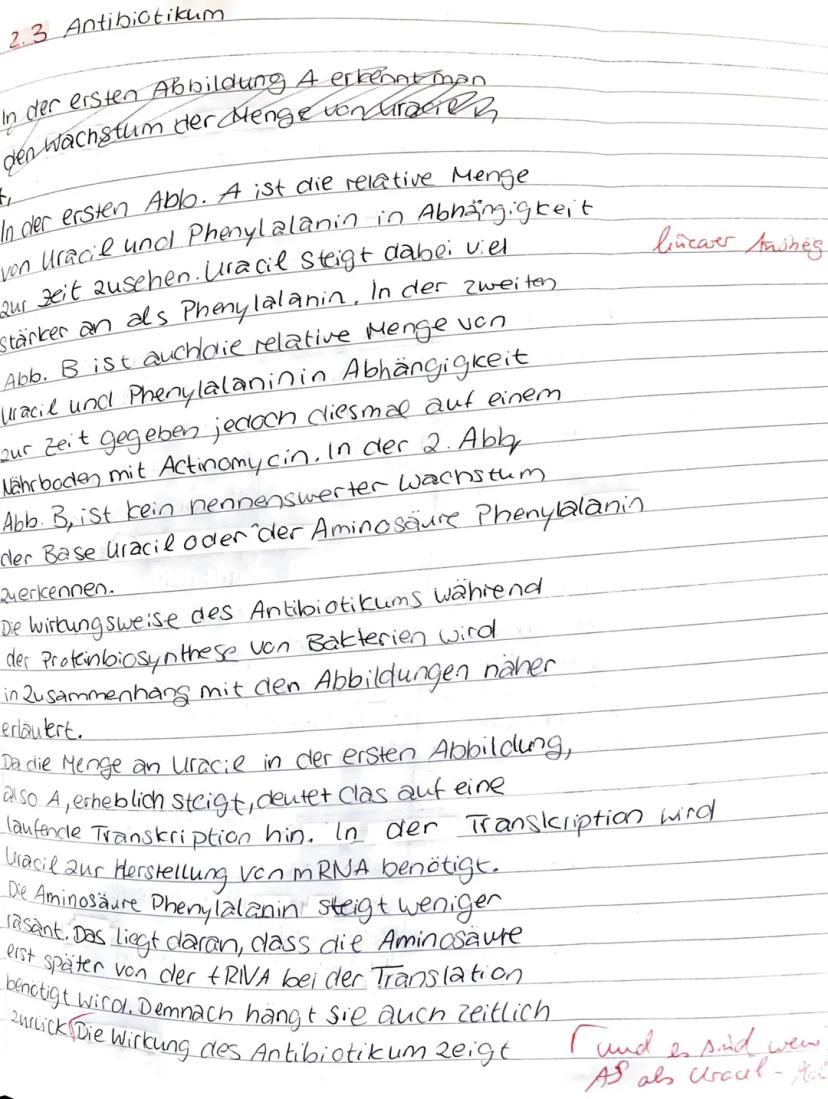 2.3 Antibiotikum
In der ersten Abbildung A erkennt man
den Wachstum der Menge von Uracil
In der ersten Abb. A ist die relative Menge
von Uracil und Phenylalanin in Abhängigkeit
zur Zeit zusehen. Uracil steigt dabei viel
linearer Anstieg
stärker an als Phenylalanin. In der zweiten
Abb. B ist auch die relative Menge von
Uracil und Phenylalanin in Abhängigkeit
zur Zeit gegeben jedoch diesmal auf einem
Nährboden mit Actinomycin. In der 2. Abb,
Abb. B, ist kein nennenswerter Wachstum
der Base Uracil oder der Aminosäure Phenylalanin
zuerkennen.
Die Wirkungsweise des Antibiotikums während
der Proteinbiosynthese von Bakterien wird
in Zusammenhang mit den Abbildungen näher
erläutert.
Da die Menge an Uracil in der ersten Abbildung,
also A, erheblich steigt, deutet das auf eine
laufende Transkription hin. In der Transkription wird
Uracil zur Herstellung von mRNA benötigt.
Die Aminosäure Phenylalanin steigt weniger
rasant. Das liegt daran, dass die Aminosäure
erst später von der tRNA bei der Translation
benötigt wird. Demnach hängt sie auch zeitlich
zurück. Die Wirkung des Antibiotikum zeigt
und es sind
AS als Uracil-